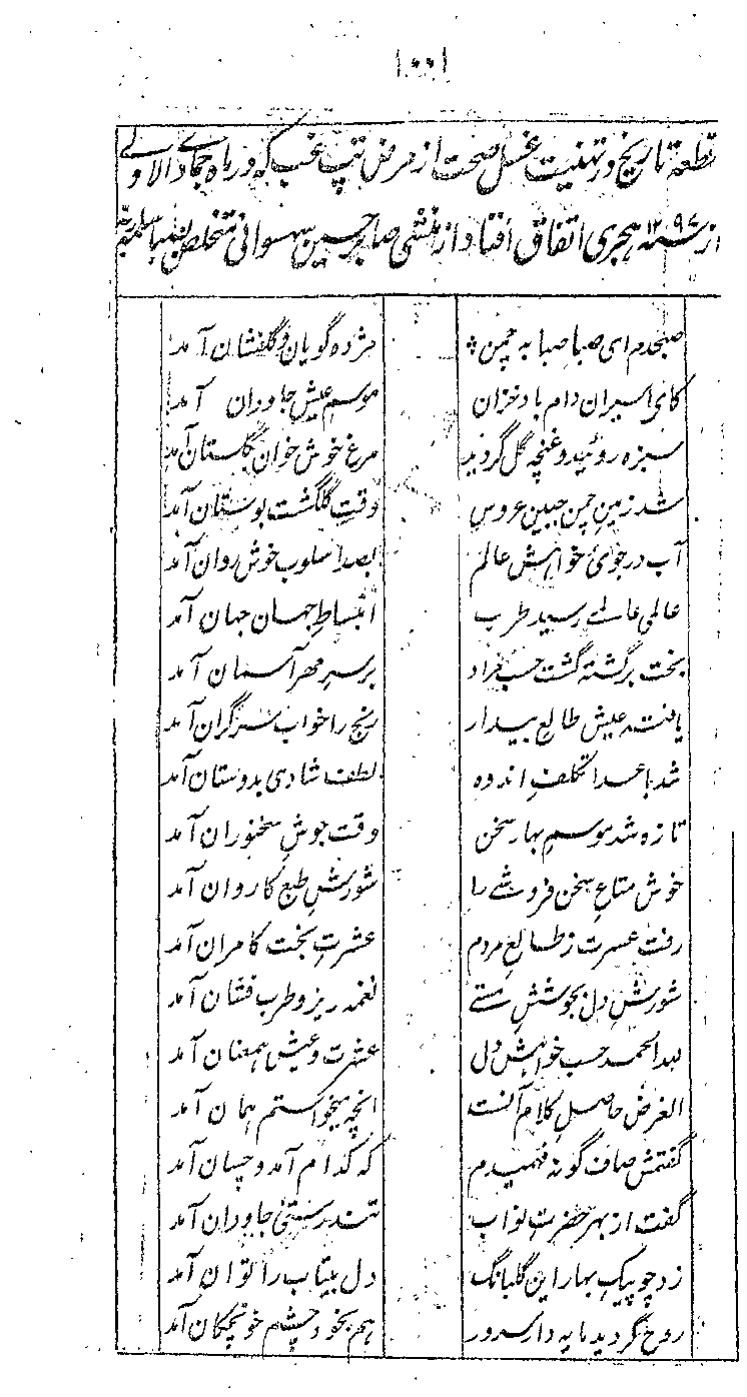 قطعهٔ تاریخ در تهنیت غسل صحت از مرض تپ غب که در ماه جمادی الاولے
از سنه ۱۲۹۷ هجری اتفاق افتاد از منشی صابر حسین سهسوانی متخلص بصبا سلمه
صبحدم ای صبا صبا به چمن مژده گویان و گلفشان آمد
کای اسیران دام باد خزان موسم عیش جاودان آمد
سبزه روئید و غنچه گل گردید مرغ خوش خوان بگلستان آمد
شد زمین چمن جبین عروس وقت گلگشت بوستان آمد
آب در جوئ خواهش عالم بصد اسلوب خوش روان آمد
عالمی عالمے رسید طرب انبساط جهان جهان آمد
بخت برگشته گشت حسب مراد بر سر مهر آسمان آمد
یافته عیش طالع بیدار رنج را خواب سر گران آمد
شد باعدا تکلف اندوه لطف شادی بدوستان آمد
تازه شد موسم بهار سخن وقت جوش سخنوران آمد
خوش متاع سخن فروشے را شورش طبع کاروان آمد
رفت عسرت ز طالع مردم عشرت بخت کامران آمد
شورش دل بجوشش مستے نغمه ریز و طرب فشان آمد
لله الحمد حسب خواهش دل عشرت و عیش همعنان آمد
الغرض حاصل کلام آنست انچه میخواستم همان آمد
گفتمش صاف گو نه فهمیدم که کدام آمد و چسان آمد
گفت از بهر حضرت نواب تندرستئ جاودان آمد
زد چو پیک بهار این گلبانگ دل بیتاب را توان آمد
روح گردید مایه دار سرور هم بخود چشم خونچکان آمد